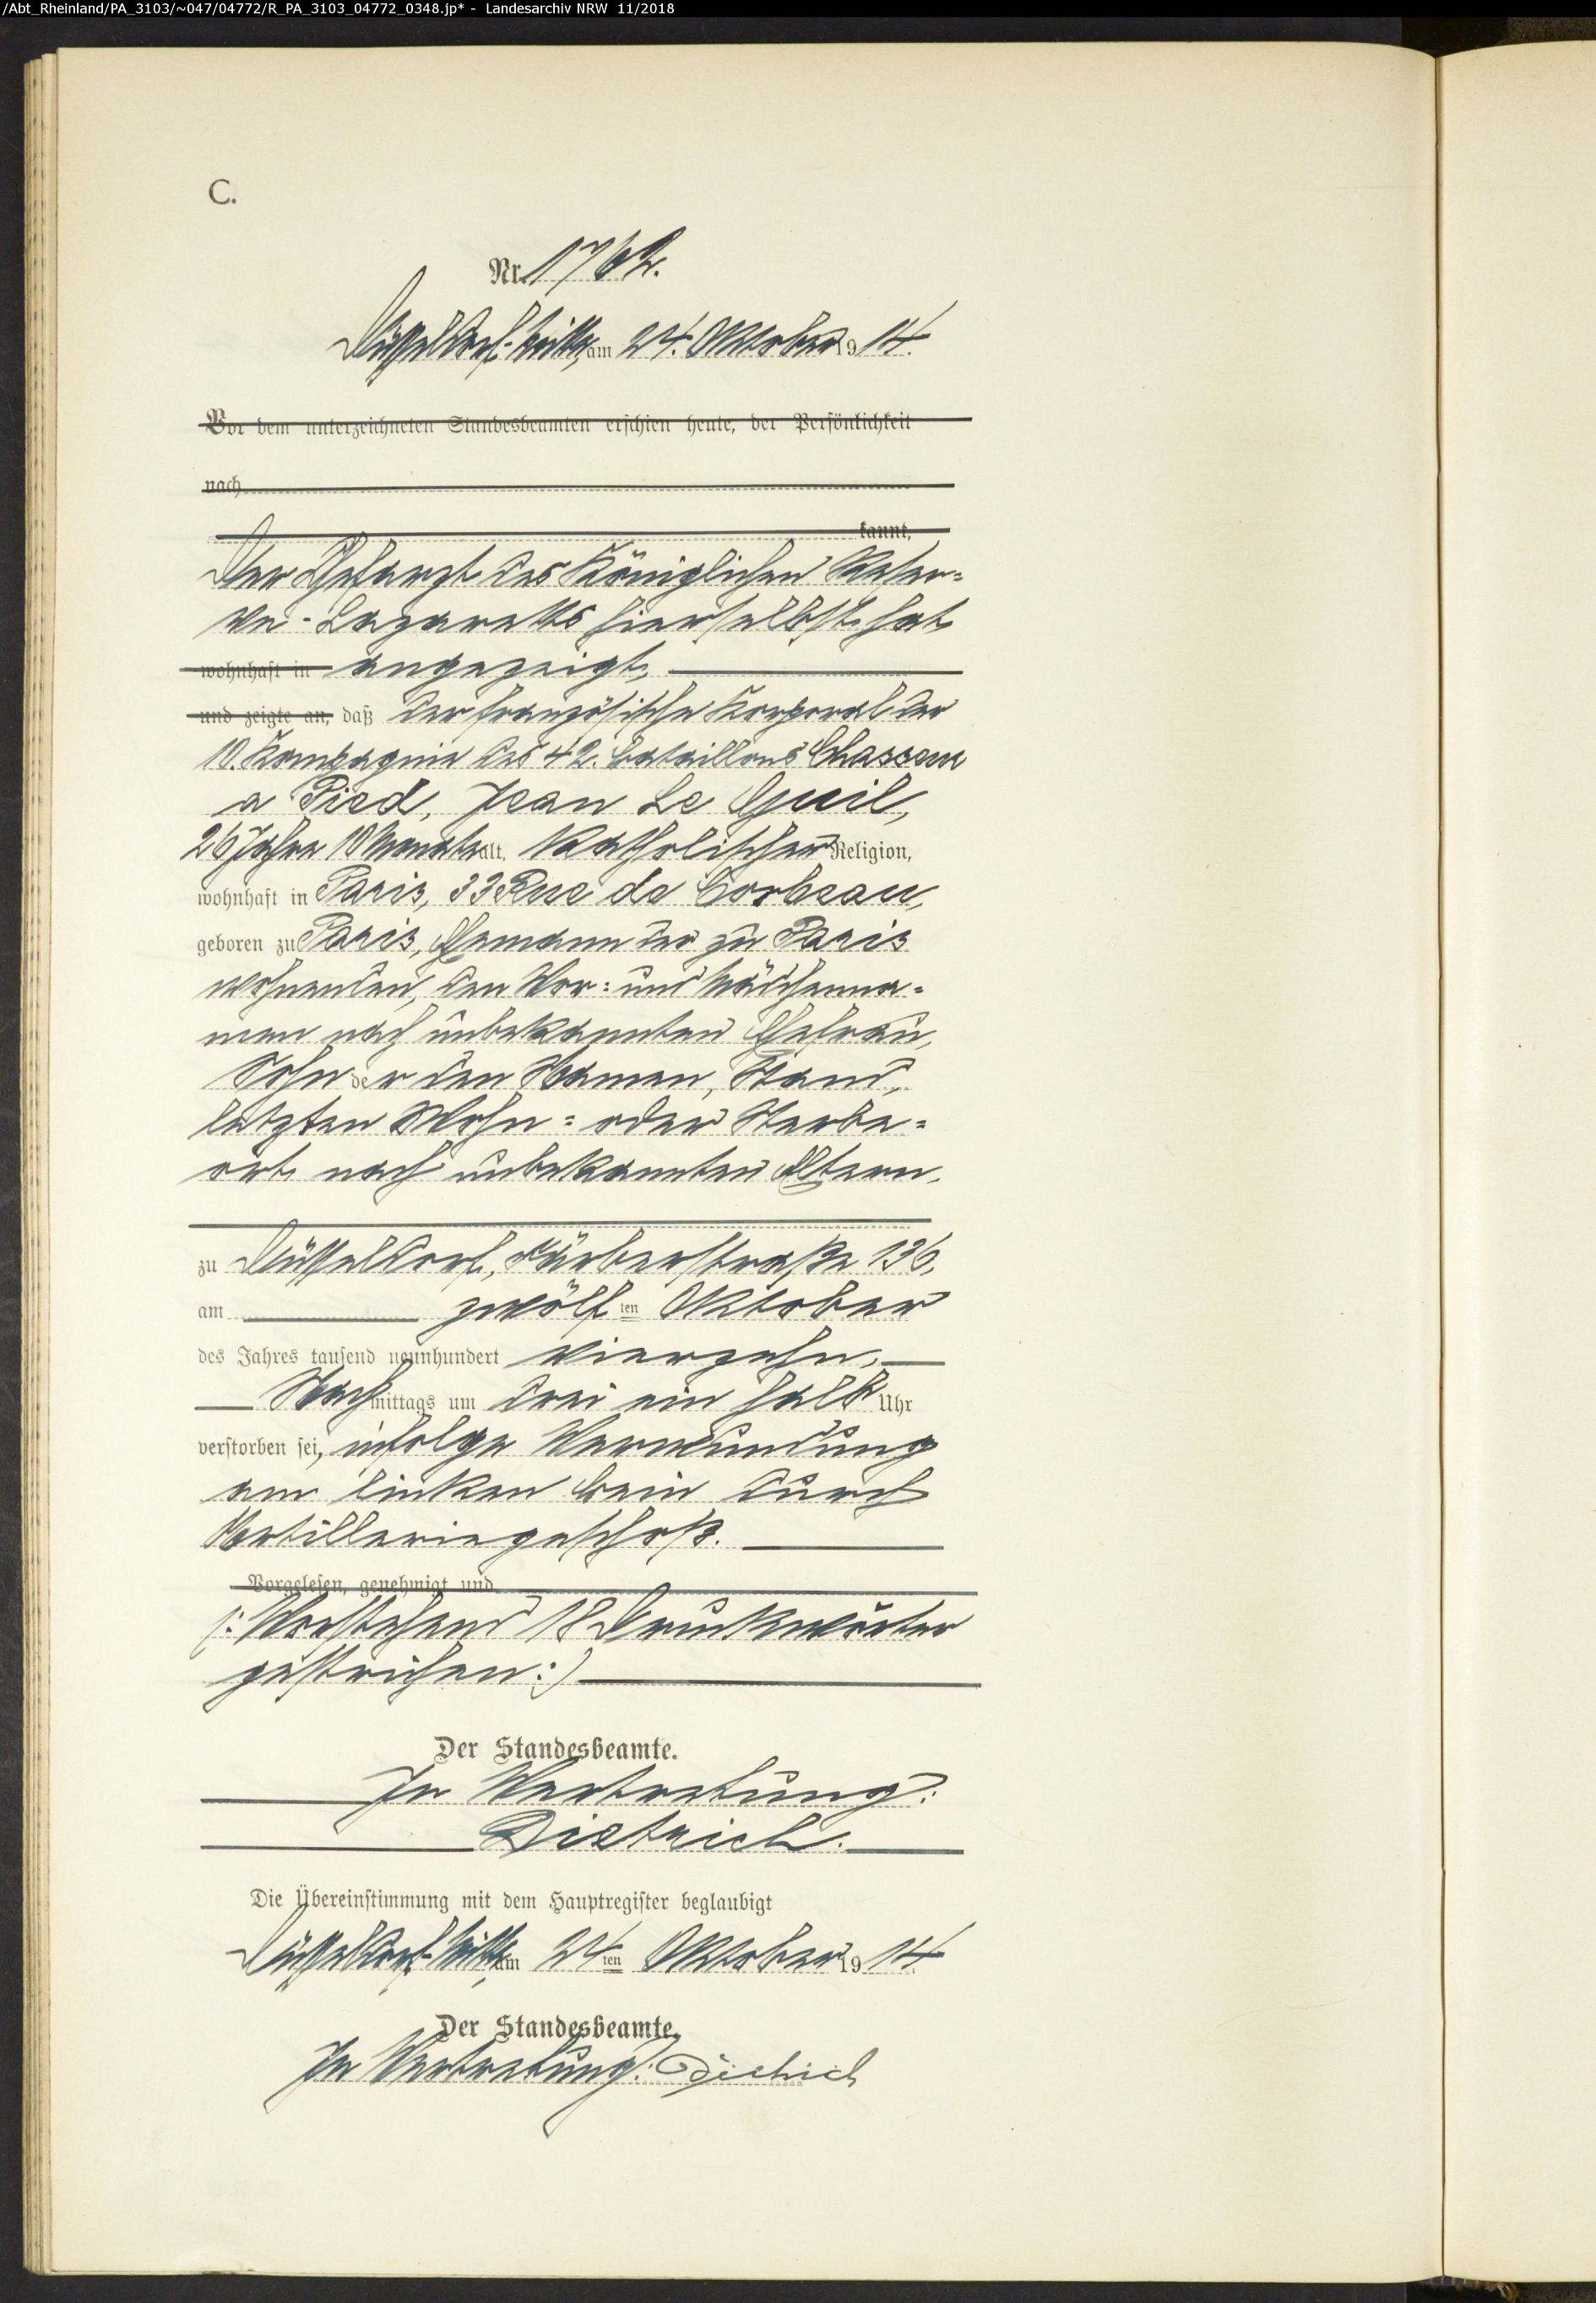 /Abt_Rheinland/PA_3103/~047/04772/R_PA_3103_04772_0348.jp* - Landesarchiv NRW 11/2018
C.
Nr. 1762.
Düsseldorf-Mitte, am 24. Oktober 1914.
Vor dem unterzeichneten Standesbeamten erschien heute, der Persönlichkeit
nach
kannt,
Der Chefarzt des Königlichen Reser=
ve-Lazaretts hierselbst hat
wohnhaft in angezeigt,
und zeigte an, daß der französische Korporal der
10. Kompagnie des 42. Bataillons Chasseur
a Pied, Jean Le Queil,
26 Jahre 10 Monate alt, katholischer Religion,
wohnhaft in Paris, 33 Rue de Corbeau,
geboren zu Paris, Ehemann der zu Paris
wohnenden, den Vor= und Mädchenna=
men nach unbekannten Ehefrau,
Sohn der den Namen, Stand,
letzten Wohn= oder Sterbe=
ort nach unbekannten Eltern,
zu Düsseldorf, Färberstraße 136,
am zwölften Oktober
des Jahres tausend neunhundert vierzehn,
Nachmittags um drei ein halb Uhr
verstorben sei, infolge Verwundung
am linken Bein durch
Artilleriegeschoß.
Vorgelesen, genehmigt und
(: Vorstehend 18 Druckwörter
gestrichen :)
Der Standesbeamte.
In Vertretung:
Dietrich.
Die Übereinstimmung mit dem Hauptregister beglaubigt
Düsseldorf-Mitte, am 24ten Oktober 1914
Der Standesbeamte.
In Vertretung: Dietrich